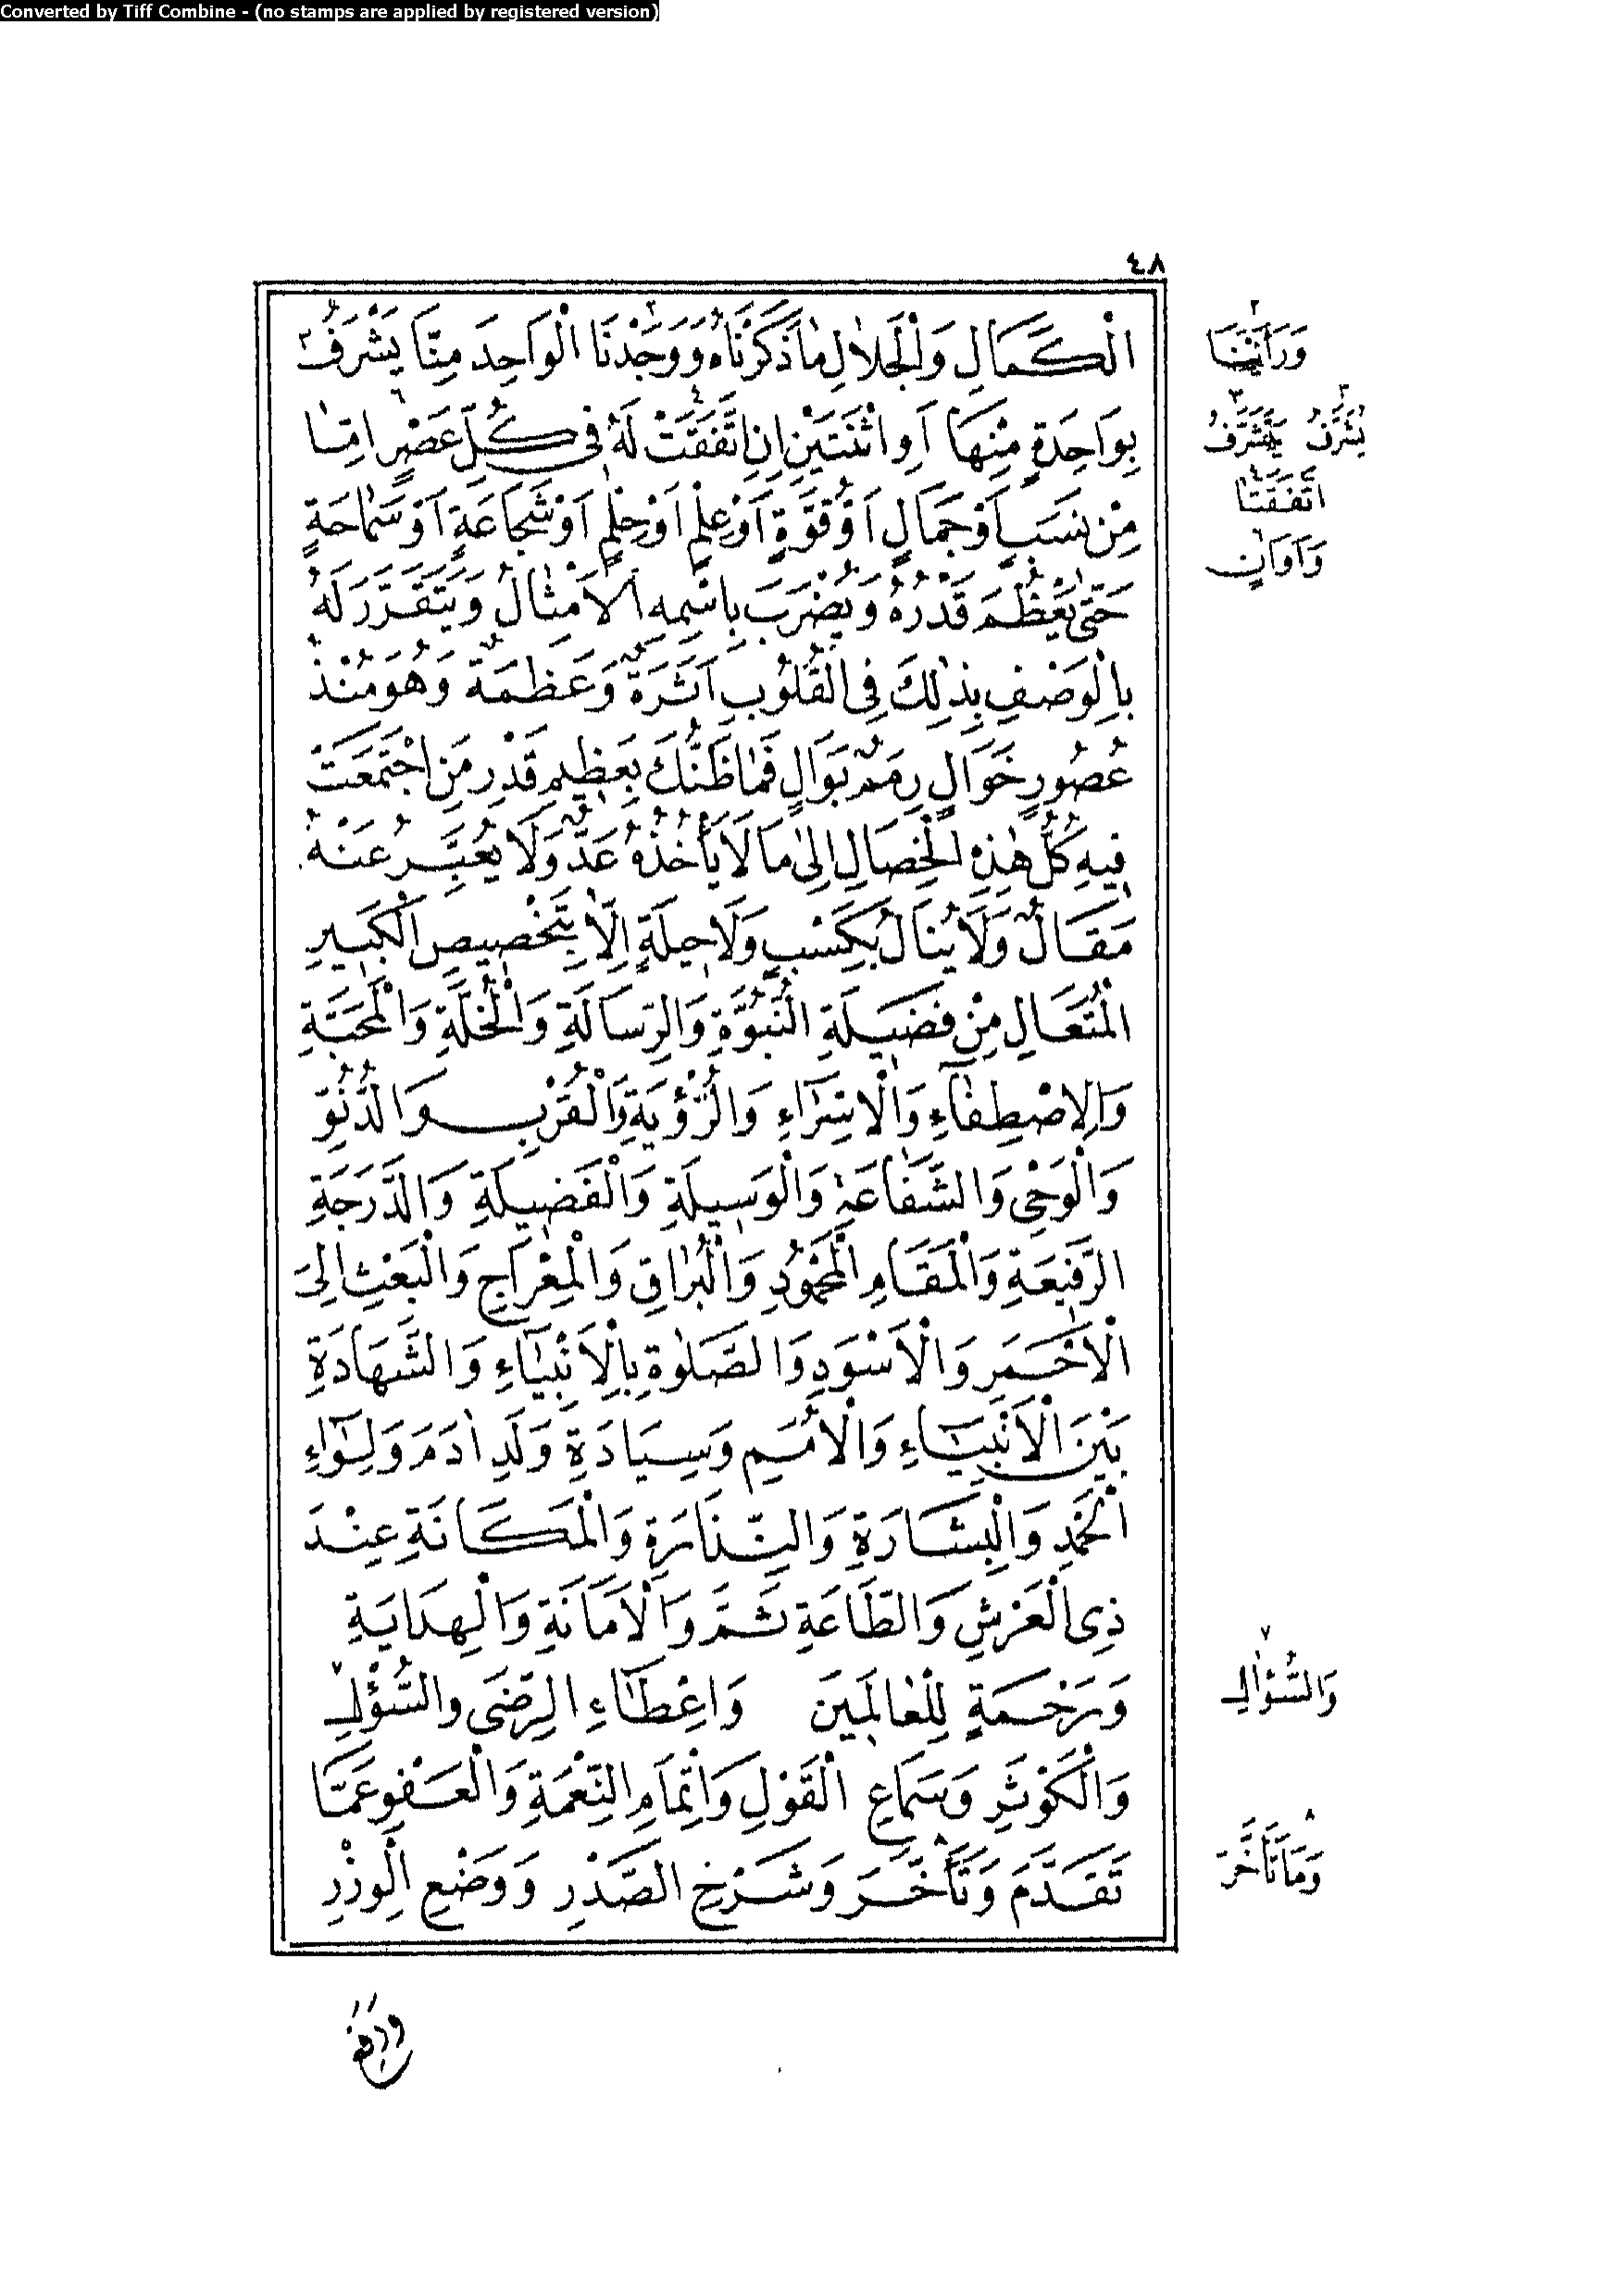 Converted by Tiff Combine - (no stamps are applied by registered version)
٤٨
الْكَمَالِ وَالْجَلَالِ مَا ذَكَرْنَاهُ وَوَجَدْنَا الْوَاحِدَ مِنَّا يَشْرُفُ
بِوَاحِدَةٍ مِنْهَا اَوِ اثْنَتَيْنِ اِنِ اتَّفَقَتْ لَهُ فِي كُلِّ عَصْرٍ اِمَّا
مِنْ نَسَبٍ اَوْ جَمَالٍ اَوْ قُوَّةٍ اَوْ عِلْمٍ اَوْ حِلْمٍ اَوْ شَجَاعَةٍ اَوْ سَمَاحَةٍ
حَتَّى يَعْظُمَ قَدْرُهُ وَيُضْرَبَ بِاسْمِهِ الْاَمْثَالُ وَيَتَقَرَّرَ لَهُ
بِالْوَصْفِ بِذٰلِكَ فِي الْقُلُوبِ اَثَرَةٌ وَعَظَمَةٌ وَهُوَ مُنْذُ
عُصُورٍ خَوَالٍ رِمَمٌ بَوَالٍ فَمَا ظَنُّكَ بِعَظِيمِ قَدْرِ مَنِ اجْتَمَعَتْ
فِيهِ كُلُّ هٰذِهِ الْخِصَالِ اِلٰى مَا لَا يَأْخُذُهُ عَدٌّ وَلَا يُعَبِّرُ عَنْهُ
مَقَالٌ وَلَا يُنَالُ بِكَسْبٍ وَلَا حِيلَةٍ اِلَّا بِتَخْصِيصِ الْكَبِيرِ
الْمُتَعَالِ مِنْ فَضِيلَةِ النُّبُوَّةِ وَالرِّسَالَةِ وَالْخُلَّةِ وَالْمَحَبَّةِ
وَالْاِصْطِفَاءِ وَالْاِسْرَاءِ وَالرُّؤْيَةِ وَالْقُرْبِ وَالدُّنُوِّ
وَالْوَحْيِ وَالشَّفَاعَةِ وَالْوَسِيلَةِ وَالْفَضِيلَةِ وَالدَّرَجَةِ
الرَّفِيعَةِ وَالْمَقَامِ الْمَحْمُودِ وَالْبُرَاقِ وَالْمِعْرَاجِ وَالْبَعْثِ اِلَى
الْاَحْمَرِ وَالْاَسْوَدِ وَالصَّلٰوةِ بِالْاَنْبِيَاءِ وَالشَّهَادَةِ
بَيْنَ الْاَنْبِيَاءِ وَالْاُمَمِ وَسِيَادَةِ وَلَدِ اٰدَمَ وَلِوَاءِ
الْحَمْدِ وَالْبِشَارَةِ وَالنِّذَارَةِ وَالْمَكَانَةِ عِنْدَ
ذِي الْعَرْشِ وَالطَّاعَةِ ثَمَّ وَالْاَمَانَةِ وَالْهِدَايَةِ
وَرَحْمَةٍ لِلْعَالَمِينَ وَاِعْطَاءِ الرِّضَى وَالسُّؤْلِ
وَالْكَوْثَرِ وَسَمَاعِ الْقَوْلِ وَاِتْمَامِ النِّعْمَةِ وَالْعَفْوِ عَمَّا
تَقَدَّمَ وَتَأَخَّرَ وَشَرْحِ الصَّدْرِ وَوَضْعِ الْوِزْرِ
يُشَرَّفُ يَتَشَرَّفُ
اتَّفَقَتَا
وَاَوَانٍ
وَالسُّؤَالِ
وَمَا تَأَخَّرَ